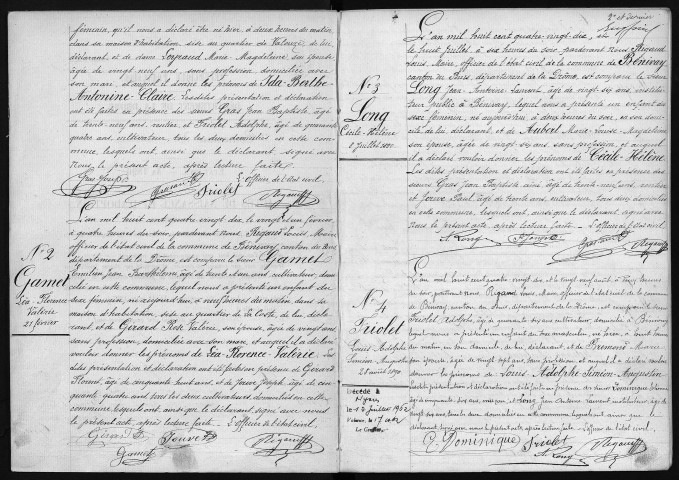 féminin, qu'il nous a déclaré être né hier, à deux heures du matin
dans sa maison d'habitation, sise au quartier de
déclarant, et de dame Marie Magdeleine, son épouse,
âgée de vingt neuf ans, sans profession, domiciliée avec
son mari, et auquel il a donné les prénoms de Ida Berthe
Antonine Claire. Lesdites présentation et déclaration
ont été faites en présence des sieurs Gras Jean Baptiste âgé
de trente-neuf ans, rentier, et Friolet Adolphe, âgé de quarante
quatre ans, cultivateur, tous les deux domiciliés en cette
commune, lesquels ont, ainsi que le déclarant, signé avec
nous le présent acte, après lecture faite.
L'officier de l'état civil,
Friolet Rigaud
N° 2
Gamet
Léa Florence
Valérie
21 février
L'an mil huit cent quatre vingt dix, le vingt et un février,
à quatre heures du soir, pardevant Nous, Rigaud Louis Marie,
officier de l'état civil de la commune de Bénivay, canton du Buis,
département de la Drôme, est comparu le sieur Gamet
Emilien Jean Barthélemy, âgé de trente et un ans, cultivateur, domi-
cilié en cette commune, lequel nous a présenté un enfant du
sexe féminin, né aujourd'hui, à neuf heures du matin, dans sa
maison d'habitation, sise au quartier de La Coste, de lui décla-
rant et de Gérard Rose Valérie, son épouse, âgée de vingt ans
sans profession, domiciliée avec son mari, et auquel il a déclaré
vouloir donner les prénoms de Léa-Florence-Valérie. Les
dites présentation et déclaration ont été faites en présence de Gérard
âgé de cinquante huit ans, et de Jouve Joseph, âgé de cin-
quante quatre ans, tous les deux cultivateurs, domiciliés en cette
commune, lesquels ont, ainsi que le déclarant, signé avec nous
le présent acte, après lecture faite. L'officier de l'état civil,
Gérard Jouve Rigaud
Gamet
2e et dernier
N° 3
Long
Cécile-Hélène
8 juillet 1890
L'an mil huit cent quatre-vingt-dix, et
le huit juillet, à six heures du soir, pardevant Nous, Rigaud
Louis, Marie, officier de l'état civil de la commune de Bénivay,
canton du Buis, département de la Drôme, est comparu le sieur
Long Jean Antoine Laurent, âgé de vingt-six ans, institu-
teur public à Bénivay, lequel nous a présenté un enfant du
sexe féminin, né aujourd'hui, à deux heures du soir, en son domi-
cile, de lui déclarant, et de Aubert Marie-Louise-
épouse, âgée de vingt-six ans, sans profession, et auquel
il a déclaré vouloir donner les prénoms de Cécile-Hélène.
Les dites présentation et déclaration ont été faites en présence des
sieurs Gras Jean Baptiste aîné, âgé de trente-neuf ans, rentier
et Jouve Paul, âgé de trente ans, cultivateur, tous deux domiciliés
en cette commune, lesquels ont, ainsi que le déclarant, signé avec
Nous le présent acte, après lecture faite. L'officier de l'état civil,
A. Long Rigaud
N° 4
Friolet
Louis-Adolphe
Siméon-Augustin
28 août 1890
Décédé à
Nyons
le 13 juillet 1962
le 17
Le Greffier,
L'an mil huit cent quatre-vingt-dix, et le vingt-neuf août, à
du soir, pardevant Nous, Rigaud Louis, Marie, officier de l'état civil de la commune
de Bénivay, canton du Buis, département de la Drôme, est comparu le sieur
Friolet, Adolphe, âgé de quarante six ans, cultivateur, domicilié à Bénivay
lequel nous a présenté un enfant du sexe masculin, né hier, à
du matin, en son domicile, de lui déclarant, et de Bremond Marie
son épouse, âgée de vingt sept ans, sans profession, et auquel il a déclaré vouloir
donner les prénoms de Louis-Adolphe-Siméon-Augustin
Lesdites présentation et déclaration ont été faites en présence des sieurs Dominique
âgé de cinquante six ans, et Long, Jean Antoine Laurent, instituteur, âgé de
vingt six ans, tous deux domiciliés en cette commune, lesquels ont, ainsi que le
déclarant, signé avec nous le présent acte, après lecture faite. L'officier de l'état civil,
Dominique Friolet Rigaud
A. Long